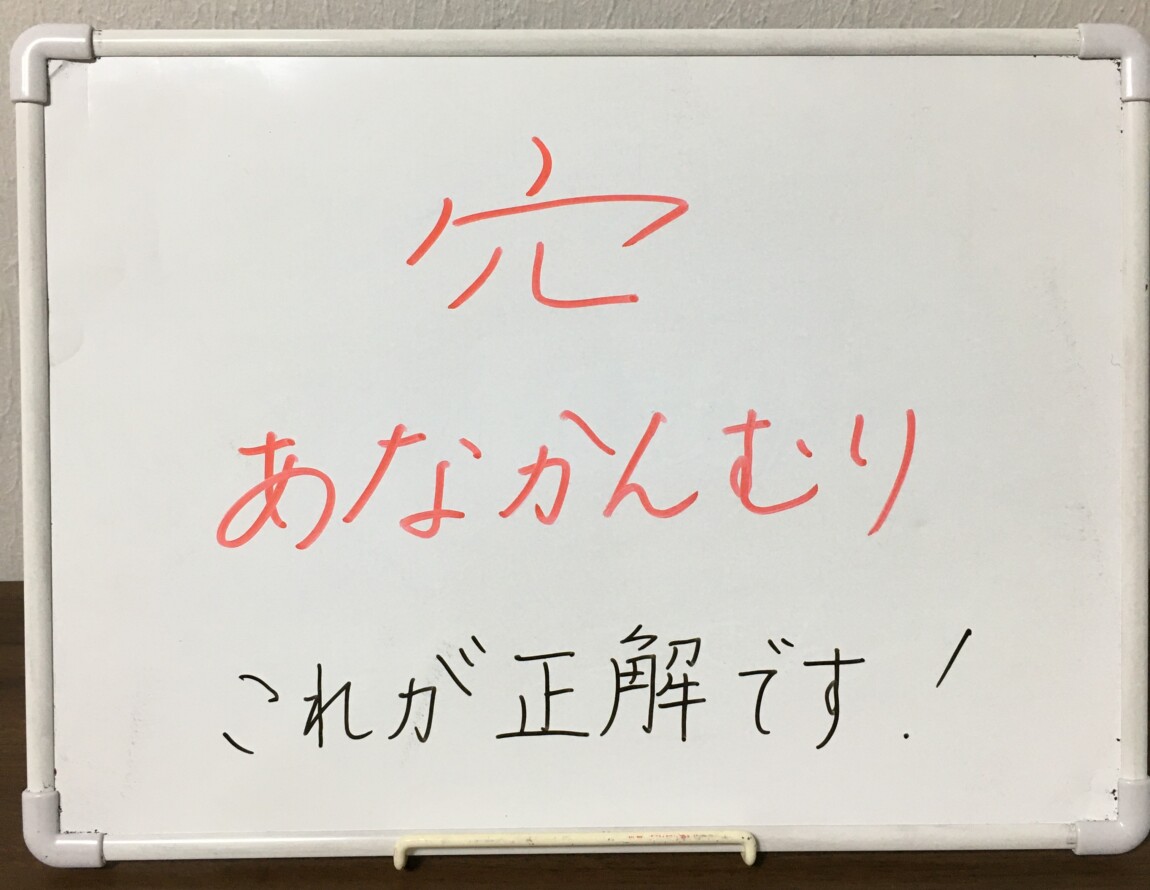 穴
あなかんむり
これが正解です!